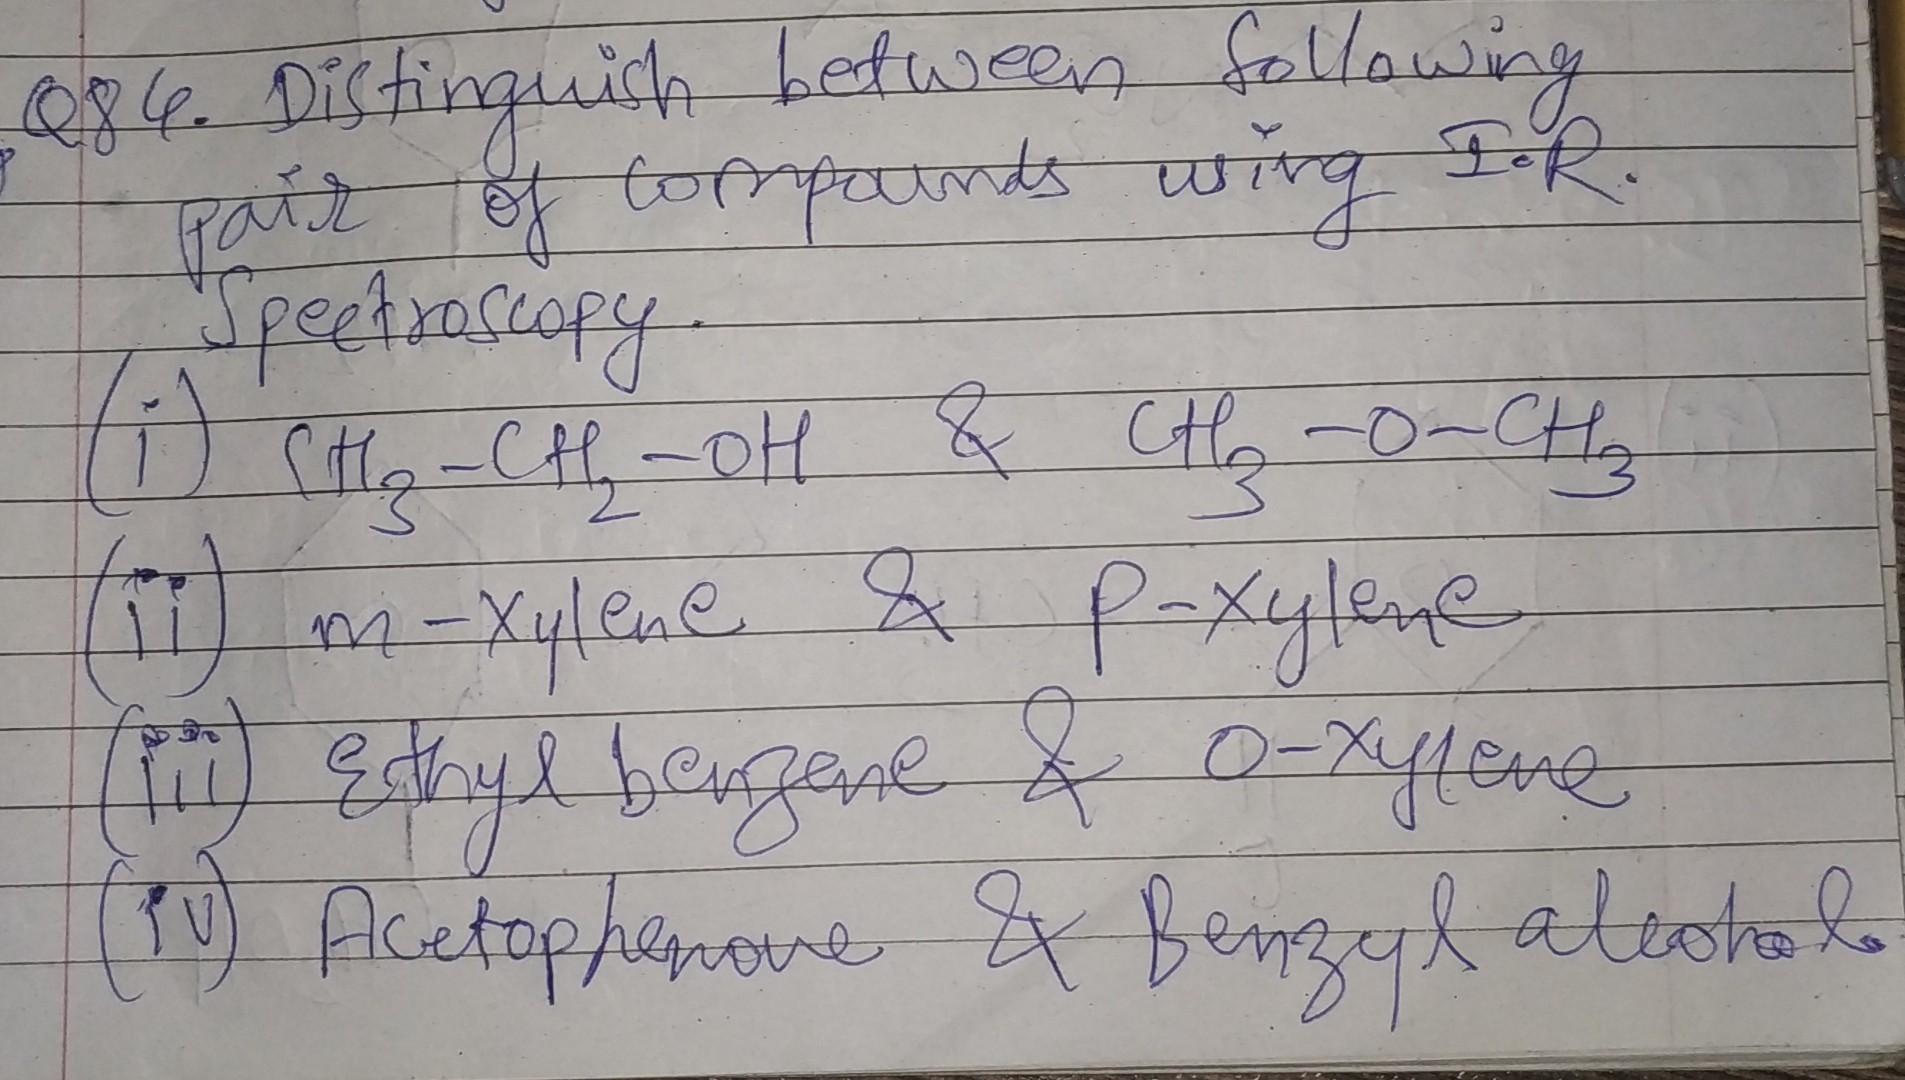 Q84. Distinguish between following
pair of compounds using I.R.
Spectroscopy.
(i) CH3-CH2-OH & CH3-O-CH3
(ii) m-Xylene & p-Xylene
(iii) Ethyl benzene & o-Xylene
(iv) Acetophenone & Benzyl alcohol.